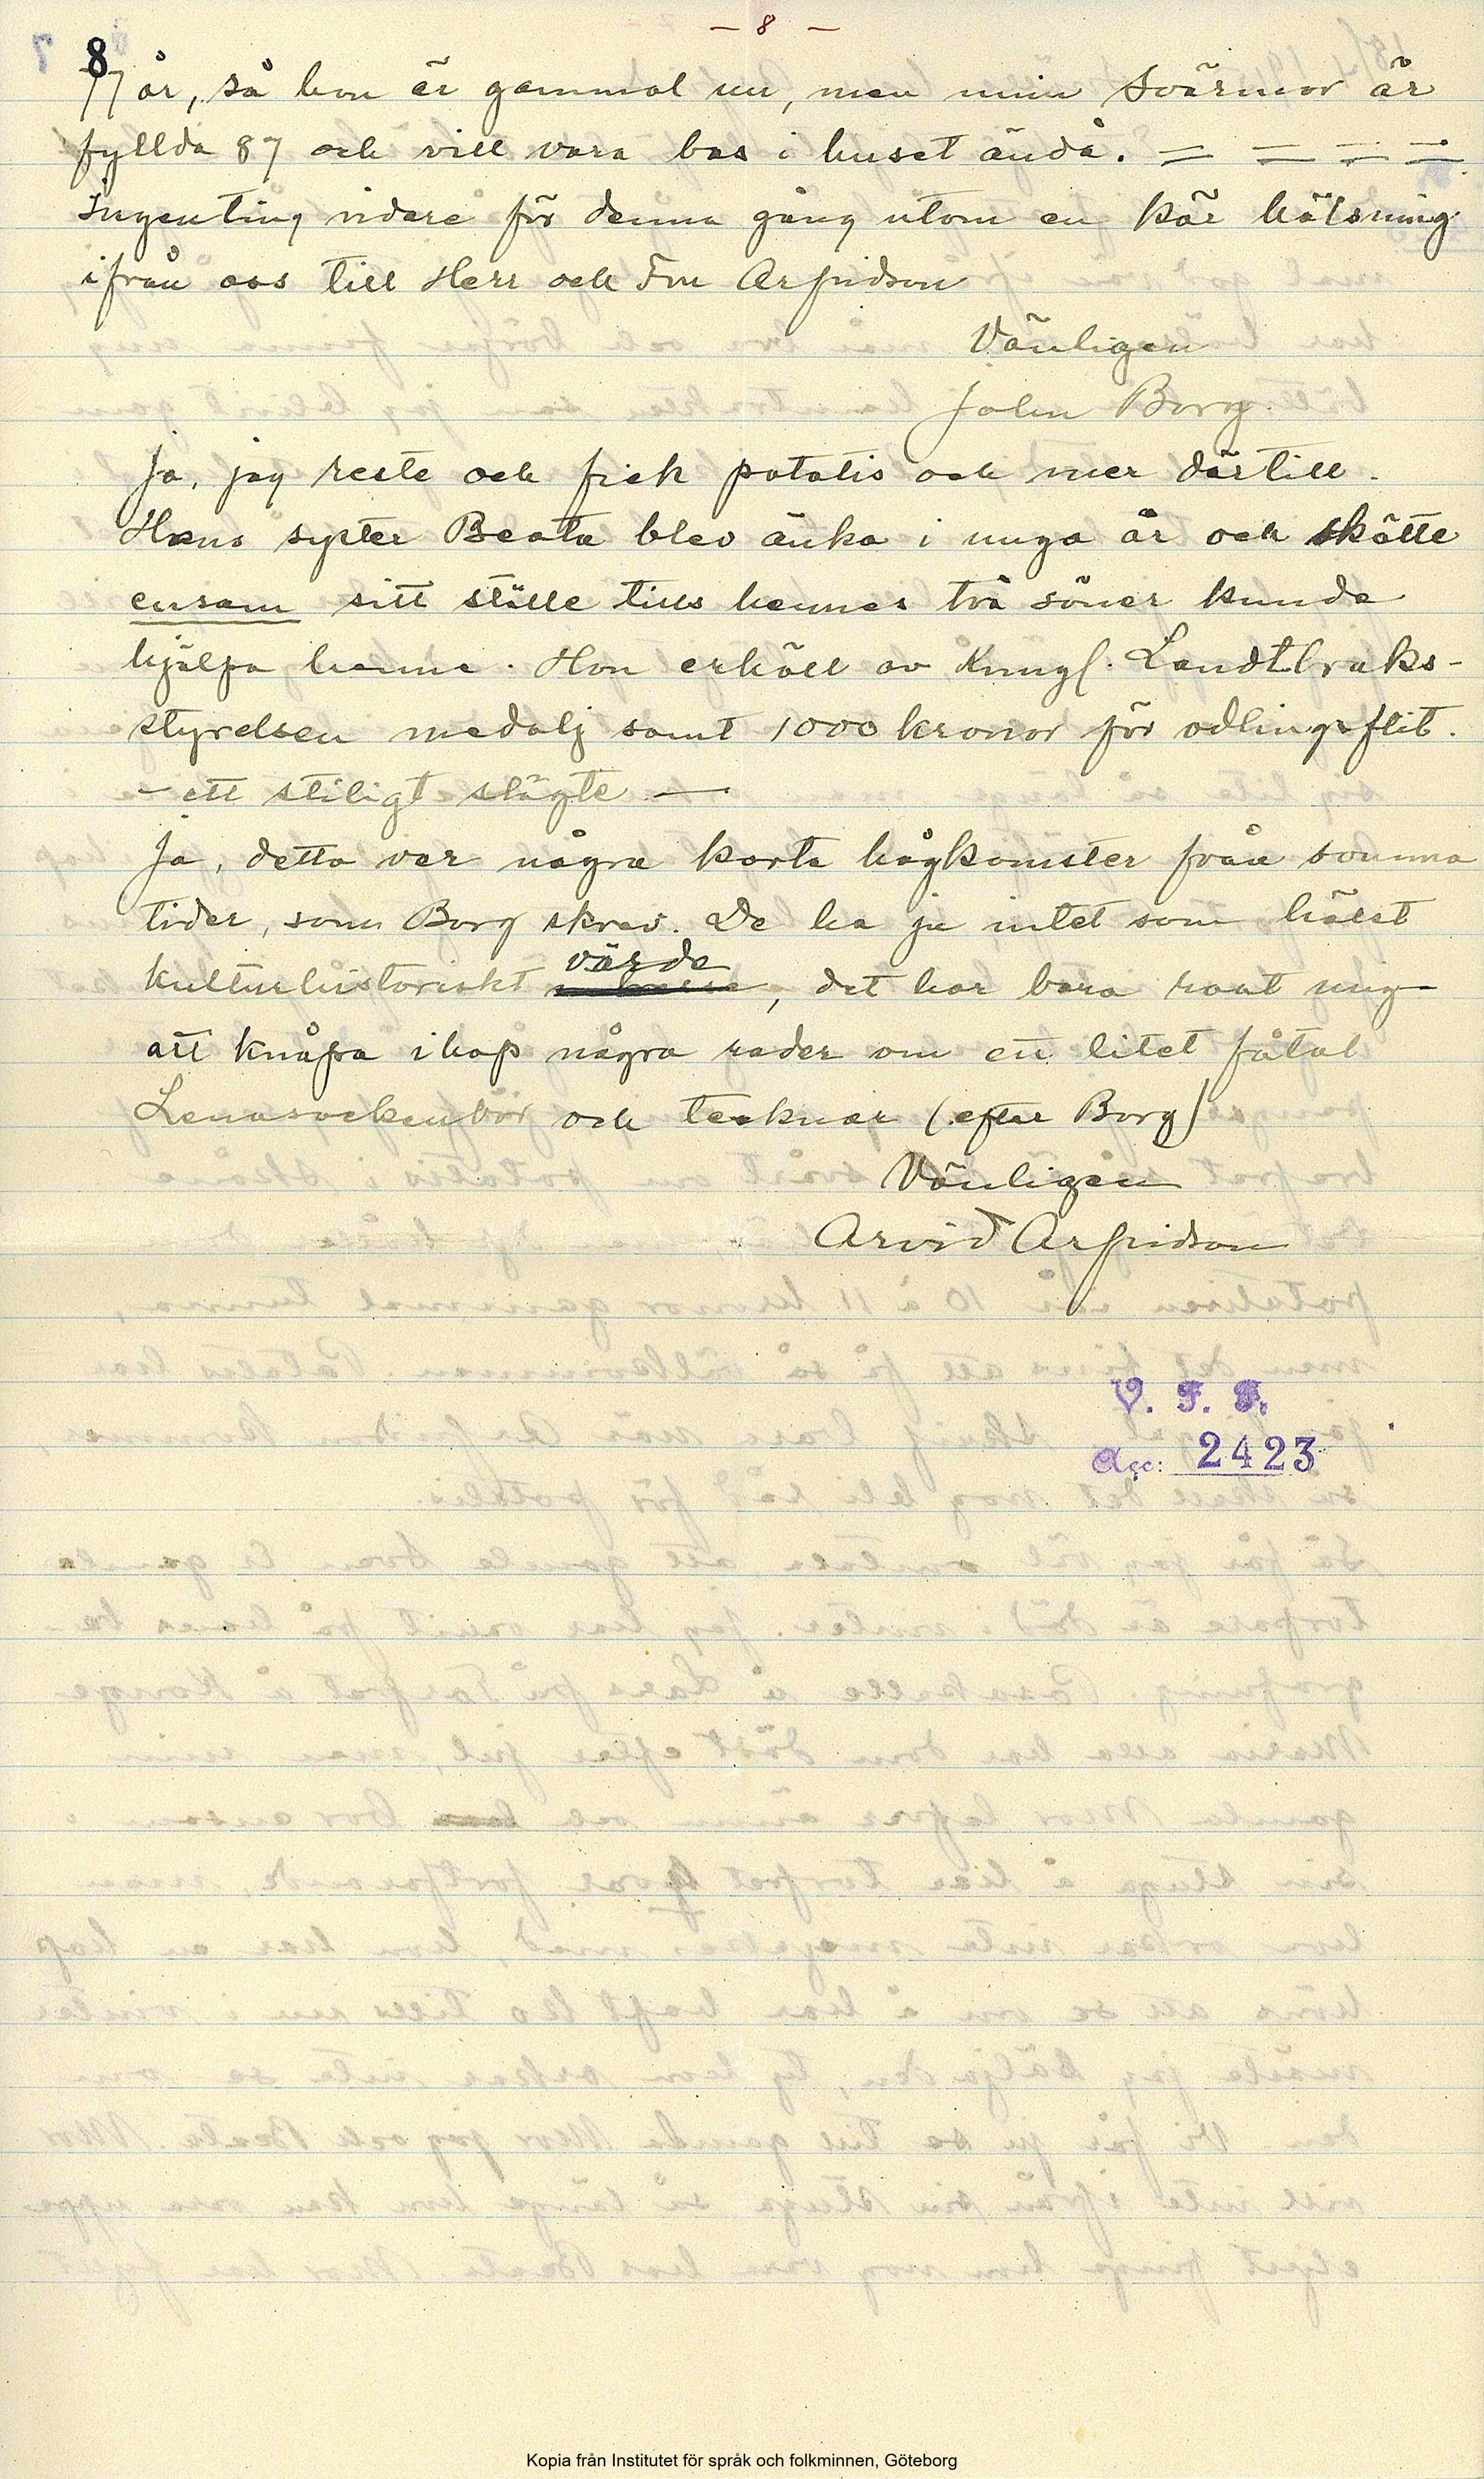 – 8 –
8
77 år, så hon är gammal nu, men min Svärmor är
fyllda 87 och vill vara bas i huset ändå. = = = =
Ingenting vidare för denna gång utom en kär hälsning
ifrån oss till Herr och Fru Arfvidson
Vänligen
John Borg.
Ja, jag reste och fick potatis och mer därtill.
Hans syster Beata blev änka i unga år och skötte
ensam sitt ställe tills hennes två söner kunde
hjälpa henne. Hon erhöll av Kungl. Landtbruks-
styrelsen medalj samt 1000 kronor för odlingsflit.
– ett stiligt slägte –
Ja, detta var några korta hågkomster från svunna
tider, som Borg skrev. De ha ju intet som hälst
kulturhistoriskt värde, det har bara roat mig
att knåpa ihop några rader om ett litet fåtal
Lenasockenbor och tecknar (efter Borg)
Vänligen
Arvid Arfvidson
V. F. F.
Acc: 2423
Kopia från Institutet för språk och folkminnen, Göteborg